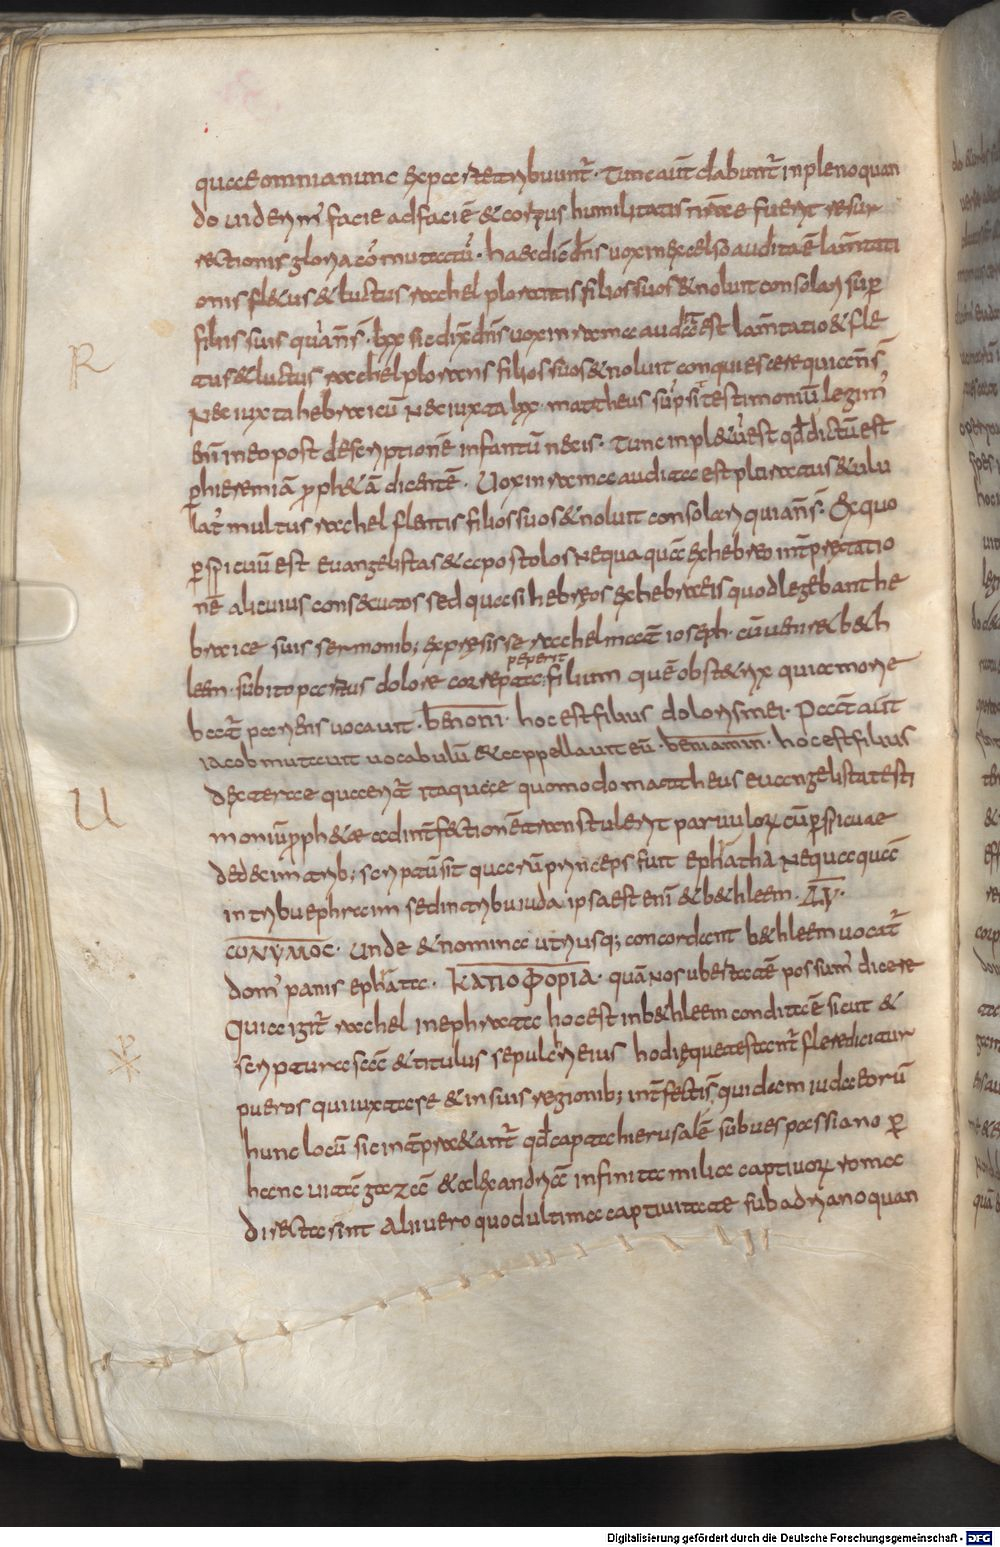 quae omnia nunc ex parte tribuunt̅. Tunc aut̅ dabunt̅ in pleno quan
do uiderim̅ facie ad facie̅ & corpus humilitatis n̅r̅ae fuerit resur
rectionis gloria co̅mutatu̅. haec dic̅ d̅n̅s uox in excelso audita e̅ lam̅tati
onis fl&us & luctus rachel plorantis filios suos & noluit consolari sup̅
filiis suis quia n̅ s̅. lxx sic dix̅ d̅n̅s uox in rama audita est lam̅tatio & fle
tus & luctus rachel plorans filios suos & noluit conquiescere quia n̅ s̅
Nec iuxta hebraicu̅ Nec iuxta lxx mattheus su̅psit testimoniu̅ legim̅
eni̅ in eo post descriptione̅ infantu̅ necis. Tunc inpl&u̅ est qd̅ dictu̅ est
p̲ hieremia̅ p̲ph&a̅ dicente̅. Uox in rama audita est ploratus & ulu
lat̅ multus rachel flentis filios suos & noluit consolari quia n̅ s̅. Ex quo
p̲spicuu̅ est euangelistas & apostolos Nequaqua̅ ex hebreo int̅pretatio
ne̅ alicuius consecutos sed quasi hebreos ex hebraeis quod legebant he
braice suis sermonib; expressisse rachel mat̅ ioseph. cu̅ uenir& b&h
leem. subito partus dolore correpta
peperit
filium que̅ obst&rix quia morie
bat̅ pariens uocauit. benoni. hoc est filius doloris mei. Pat̅ aut̅
iacob mutauit uocabulu̅ & appellauit eu̅. beniamin. hoc est filius
dexterae quaerit̅ itaque quomodo mattheus euangelista testi
moniu̅ p̲ph&ae ad int̅fectione̅ transtulerit paruulor̅ cu̅ p̲spicuae
de decim trib; scriptu̅ sit quaru̅ princeps fuit ephratha Nequaqua̅
in tribu ephraim sed in tribu iuda ipsa est eni̅ & b&hleem. ΔΥ.
CωΝΥΜΟC. Unde & nomina utriusq; concordant b&hleem uocat̅
dom̅ panis ephrata. ΚΑΠΟΦΟΡΙΑ. qua̅ Nos ubertate̅ possum̅ dicere
Quia igit̅ rachel in ephrata hoc est in b&hleem condita e̅ sicut &
scriptura sca̅ & titulus sepulchri eius hodieque testant̅ flere dicitur
pueros qui iuxta se & in suis regionib; int̅fecti s̅. quidam iudaeoru̅
hunc locu̅ sic int̅pr&ant̅ qd̅ capta hierusale̅ sub uespassiano p̲
hanc uia̅ gaza̅ & alexandria̅ infinita milia captiuor̅ romae
directa sint alii uero quod ultima captiuitate sub adriano quan
R
U
Digitalisierung gefördert durch die Deutsche Forschungsgemeinschaft - DFG